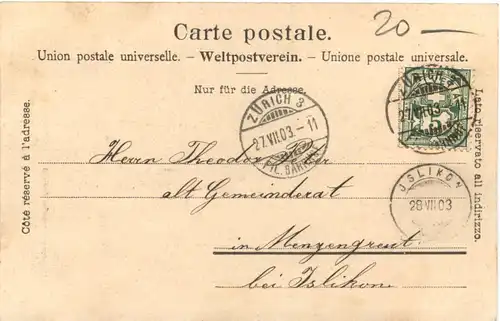 20 —
Carte postale.
Union postale universelle. - Weltpostverein. - Unione postale universale.
Nur für die Adresse.
Côté réservé à l'adresse.
Lato riservato all indirizzo.
ZÜRICH 3
27.VII.03.-11
FIL. BAHNHOF
ZÜRICH 3
27.VII.03.-11
JSLIKON
28 VII 03
Herrn Theodor
alt Gemeinderat
in Menzengreut
bei Islikon.